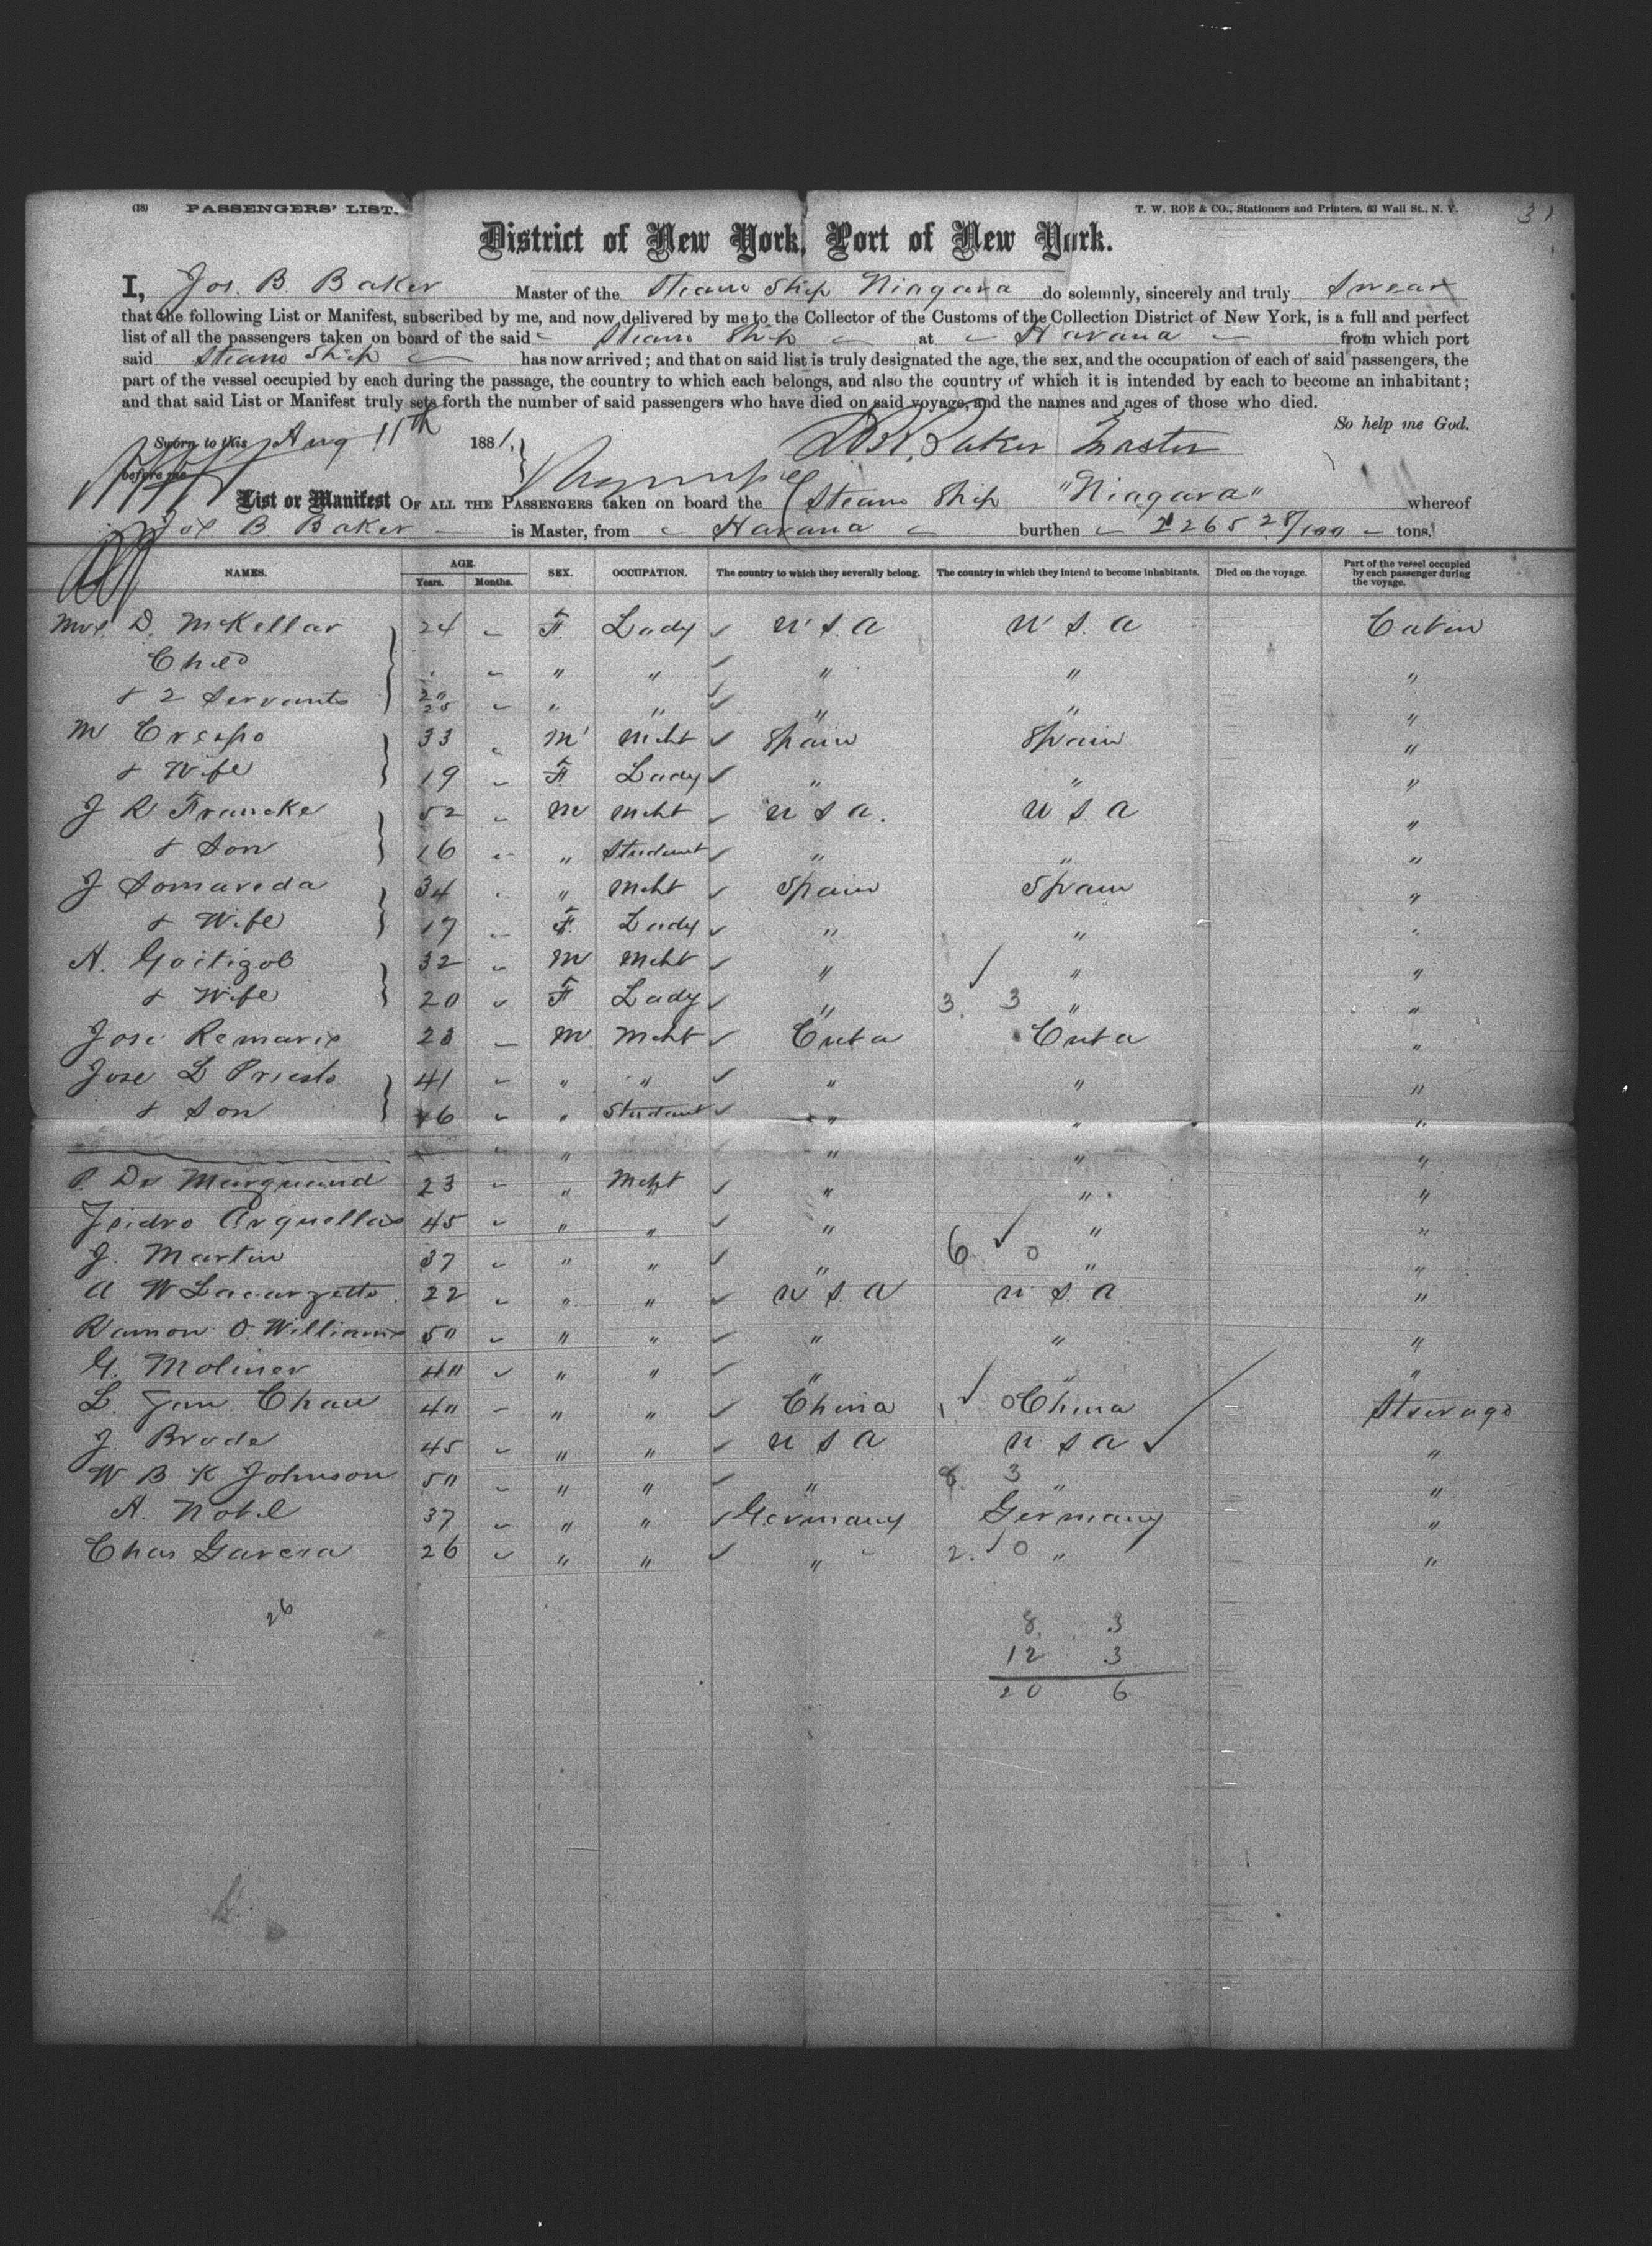 (18) PASSENGERS' LIST. T. W. ROE & CO., Stationers and Printers, 63 Wall St., N. Y. 31
District of New York, Port of New York.
I, Jos. B. Baker Master of the Steam Ship Niagara do solemnly, sincerely and truly Swear
that the following List or Manifest, subscribed by me, and now delivered by me to the Collector of the Customs of the Collection District of New York, is a full and perfect
list of all the passengers taken on board of the said Steam Ship at Havana from which port
said Steam Ship has now arrived; and that on said list is truly designated the age, the sex, and the occupation of each of said passengers, the
part of the vessel occupied by each during the passage, the country to which each belongs, and also the country of which it is intended by each to become an inhabitant;
and that said List or Manifest truly sets forth the number of said passengers who have died on said voyage, and the names and ages of those who died.
So help me God.
Sworn to this Aug 11th 1881. Baker Master
before me
List or Manifest OF ALL THE PASSENGERS taken on board the Steam Ship "Niagara" whereof
Jos B. Baker is Master, from Havana burthen 2265 28/100 tons.
NAMES. AGE. Years. Months. SEX. OCCUPATION. The country to which they severally belong. The country in which they intend to become inhabitants. Died on the voyage. Part of the vessel occupied by each passenger during the voyage.
Mrs D. McKellar 24 F. Lady U S A U S. A Cabin
Child " " " " "
& 2 Servants 20 25 " " " " "
M Crespo 33 M Mcht Spain Spain "
& Wife 19 F Lady " " "
J R Francke 52 M Mcht U S A. U S A "
& Son 16 " Student " " "
J Somareda 34 " Mcht Spain Spain "
& Wife 17 F. Lady " " "
A. Goitizob 32 M Mcht " " "
& Wife 20 F Lady " 3. 3 " "
Jose Remaris 23 M Mcht Cuba Cuba "
Jose L Priesto 41 " " " " "
& Son 16 " Student " " "
" " " "
P. De Marquand 23 " Mcht " " "
Isidro Arquellas 45 " " " " "
J. Martin 37 " " " 6. 0 " "
A W Lacarzette 22 " " U S A U S. A "
Ramon O. Williams 50 " " " " "
G. Moliner 40 " " " " "
L. Jan Chau 40 " " China 1 0 China Steerage
J. Brode 45 " " U S A U S A "
W B K Johnson 50 " " " 8. 3 " "
A. Nobel 37 " " Germany Germany "
Chas Garcia 26 " " " 2. 0 " "
26
8. 3
12 3
20 6